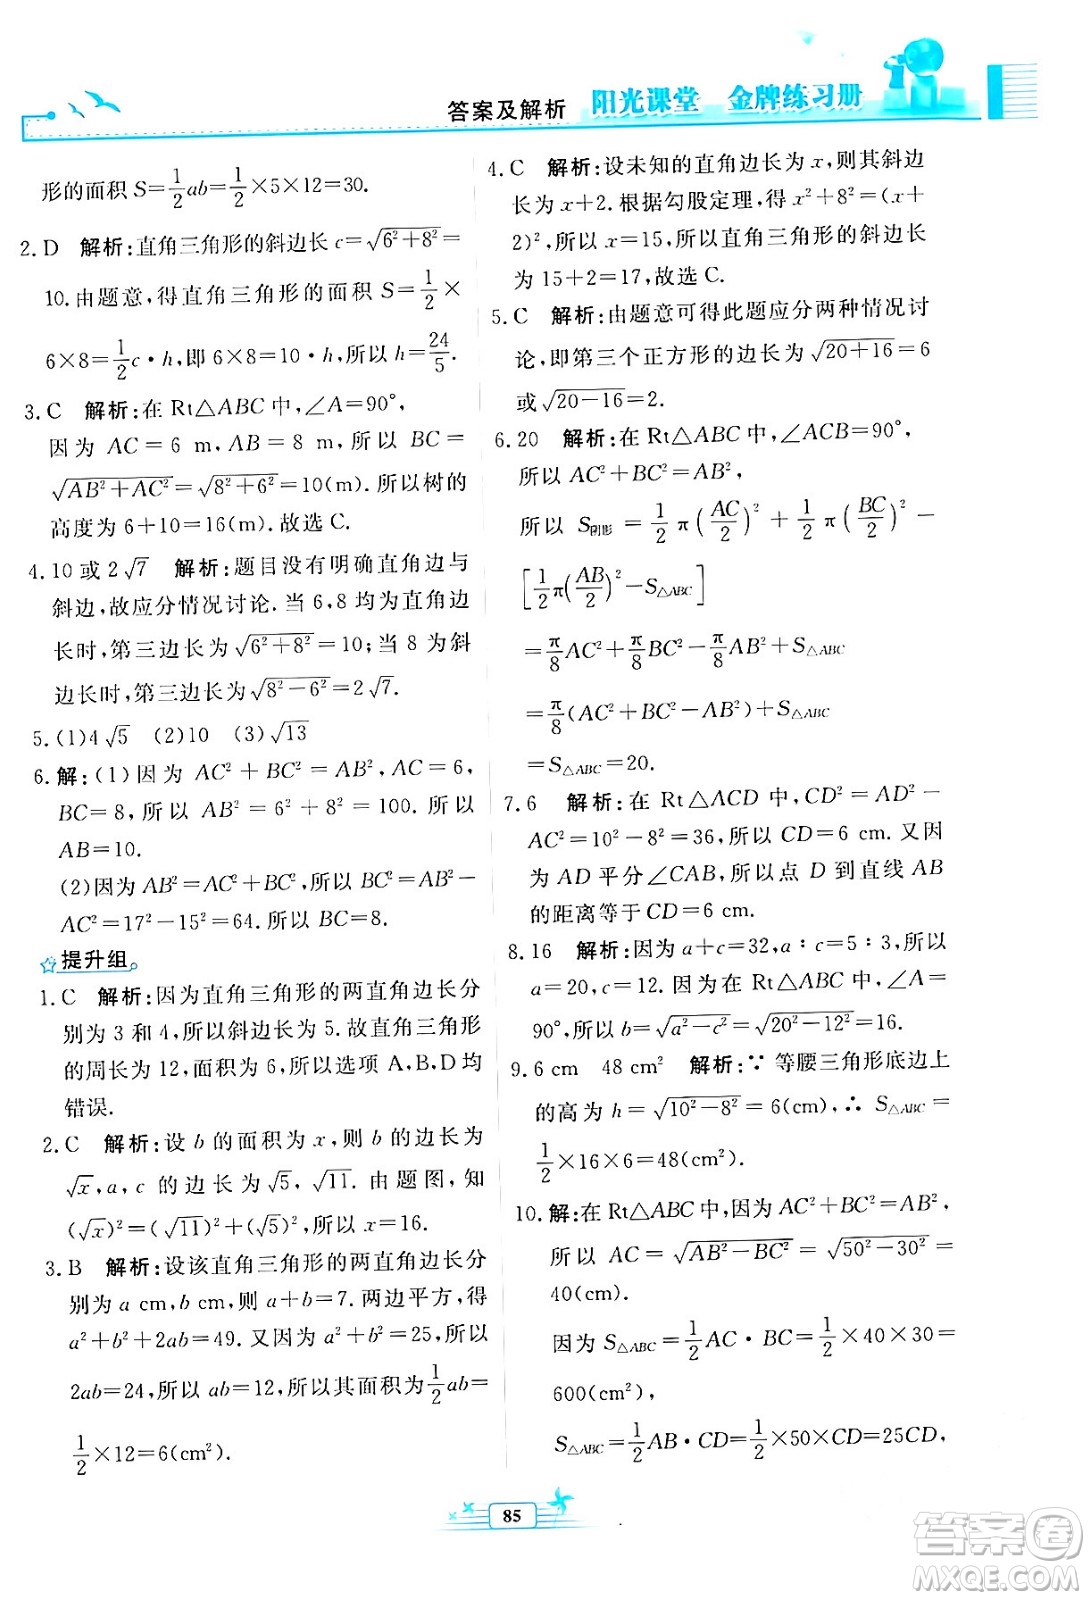 答案及解析 阳光课堂 金牌练习册
形的面积 S=\frac{1}{2}ab=\frac{1}{2}×5×12=30.
2. D 解析:直角三角形的斜边长 c=\sqrt{6²+8²}=
10.由题意,得直角三角形的面积 S=\frac{1}{2}×
6×8=\frac{1}{2}c·h,即 6×8=10·h,所以 h=\frac{24}{5}.
3. C 解析:在 Rt△ABC 中,∠A=90°,
因为 AC=6 m,AB=8 m,所以 BC=
\sqrt{AB²+AC²}=\sqrt{8²+6²}=10(m).所以树的
高度为 6+10=16(m).故选 C.
4. 10 或 2\sqrt{7} 解析:题目没有明确直角边与
斜边,故应分情况讨论.当 6,8 均为直角边
长时,第三边长为\sqrt{6²+8²}=10;当 8 为斜
边长时,第三边长为\sqrt{8²-6²}=2\sqrt{7}.
5. (1)4\sqrt{5} (2)10 (3)\sqrt{13}
6. 解:(1)因为 AC²+BC²=AB²,AC=6,
BC=8,所以 AB²=6²+8²=100.所以
AB=10.
(2)因为 AB²=AC²+BC²,所以 BC²=AB²-
AC²=17²-15²=64.所以 BC=8.
提升组
1. C 解析:因为直角三角形的两直角边长分
别为 3 和 4,所以斜边长为 5.故直角三角形
的周长为 12,面积为 6,所以选项 A,B,D 均
错误.
2. C 解析:设 b 的面积为 x,则 b 的边长为
\sqrt{x},a,c 的边长为\sqrt{5},\sqrt{11}.由题图,知
(\sqrt{x})²=(\sqrt{11})²+(\sqrt{5})²,所以 x=16.
3. B 解析:设该直角三角形的两直角边长分
别为 a cm,b cm,则 a+b=7.两边平方,得
a²+b²+2ab=49.又因为 a²+b²=25,所以
2ab=24,所以 ab=12,所以其面积为\frac{1}{2}ab=
\frac{1}{2}×12=6(cm²).
4. C 解析:设未知的直角边长为 x,则其斜边
长为 x+2.根据勾股定理,得 x²+8²=(x+
2)²,所以 x=15,所以直角三角形的斜边长
为 15+2=17,故选 C.
5. C 解析:由题意可得此题应分两种情况讨
论,即第三个正方形的边长为\sqrt{20+16}=6
或\sqrt{20-16}=2.
6. 20 解析:在 Rt△ABC 中,∠ACB=90°,
所以 AC²+BC²=AB²,
所以 S阴影=\frac{1}{2}π(\frac{AC}{2})²+\frac{1}{2}π(\frac{BC}{2})²-
[\frac{1}{2}π(\frac{AB}{2})²-S△ABC]
=\frac{π}{8}AC²+\frac{π}{8}BC²-\frac{π}{8}AB²+S△ABC
=\frac{π}{8}(AC²+BC²-AB²)+S△ABC
=S△ABC=20.
7. 6 解析:在 Rt△ACD 中,CD²=AD²-
AC²=10²-8²=36,所以 CD=6 cm.又因
为 AD 平分∠CAB,所以点 D 到直线 AB
的距离等于 CD=6 cm.
8. 16 解析:因为 a+c=32,a:c=5:3,所以
a=20,c=12.在 Rt△ABC 中,因为∠A=
90°,所以 b=\sqrt{a²-c²}=\sqrt{20²-12²}=16.
9. 6 cm 48 cm² 解析:∵等腰三角形底边上
的高为 h=\sqrt{10²-8²}=6(cm),∴S△ABC=
\frac{1}{2}×16×6=48(cm²).
10. 解:在 Rt△ABC 中,因为 AC²+BC²=AB²,
所以 AC=\sqrt{AB²-BC²}=\sqrt{50²-30²}=
40(cm).
因为 S△ABC=\frac{1}{2}AC·BC=\frac{1}{2}×40×30=
600(cm²),
S△ABC=\frac{1}{2}AB·CD=\frac{1}{2}×50×CD=25CD,
85
答案圈
MXQE.COM